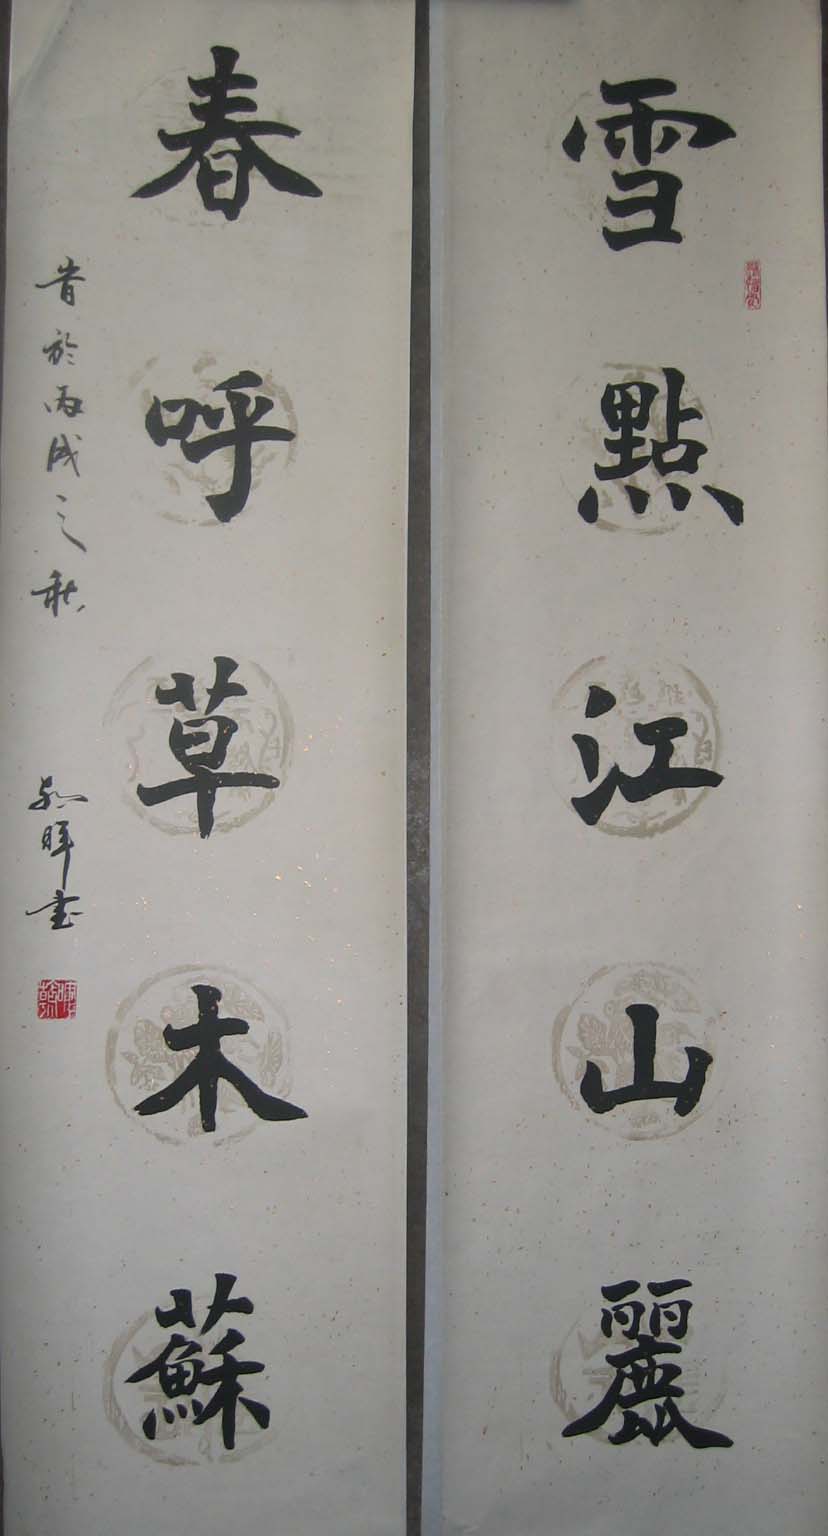 雪點江山麗
春呼草木蘇
時於丙戌之秋
暉書